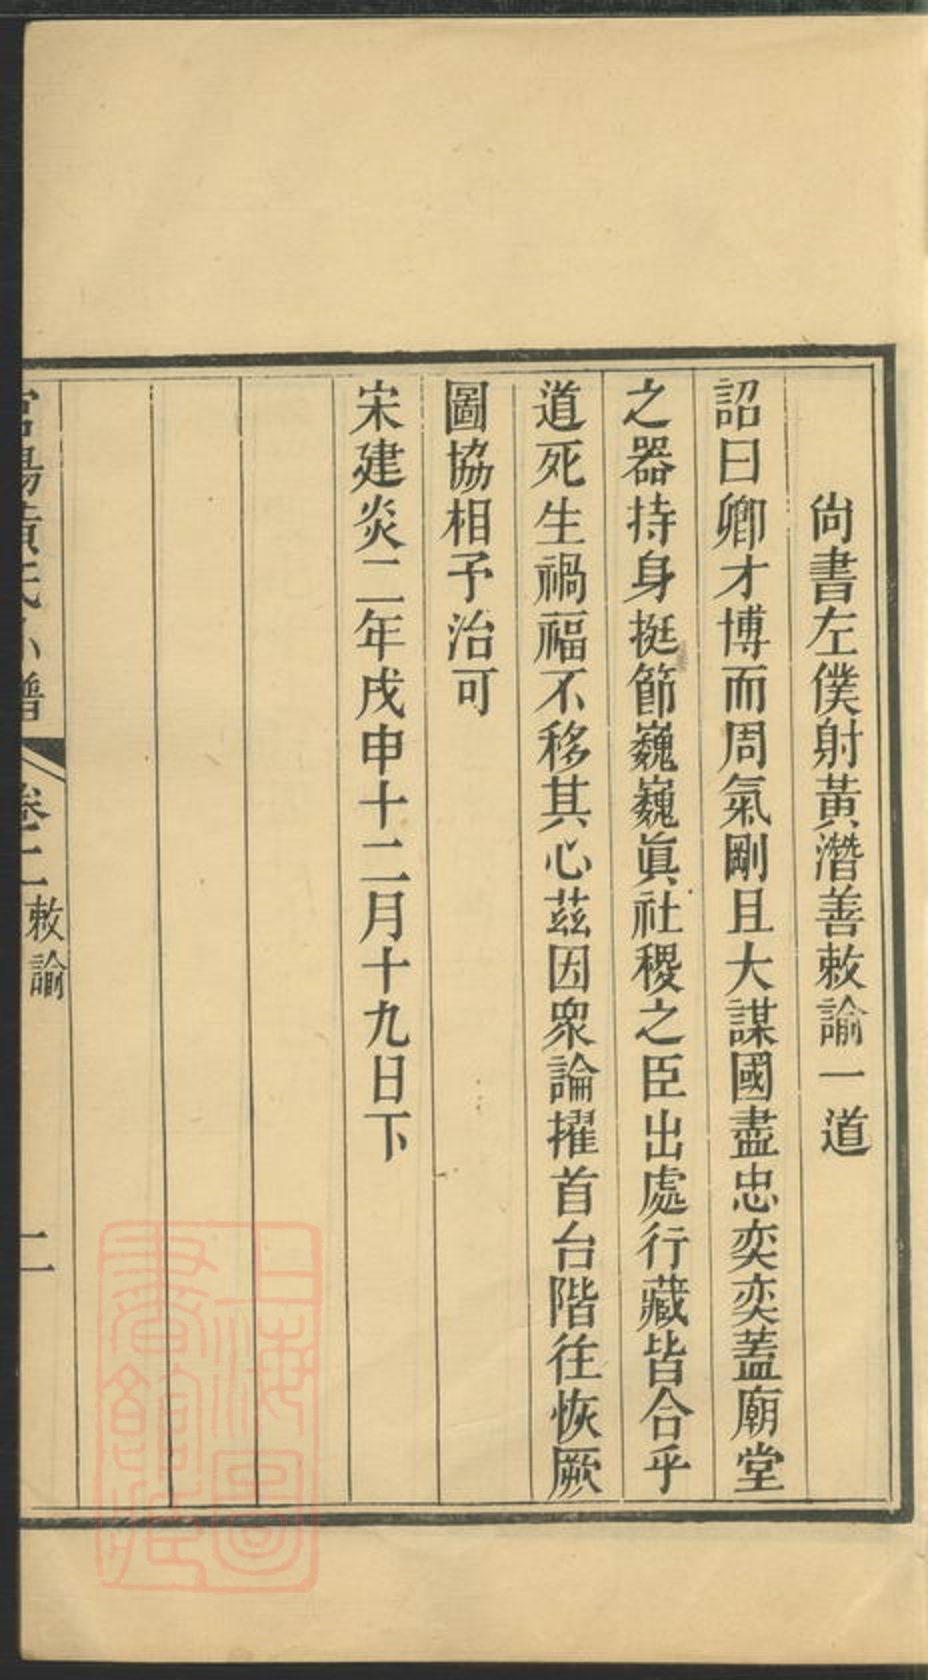 尙書左僕射黃潛善敕諭一道
詔曰卿才博而周氣剛且大謀國盡忠奕奕蓋廟堂
之器持身挺節巍巍眞社稷之臣出處行藏皆合乎
道死生禍福不移其心茲因衆論擢首台階往恢厥
圖協相予治可
宋建炎二年戊申十二月十九日下
卷二 敕諭
二
上海圖
書館藏